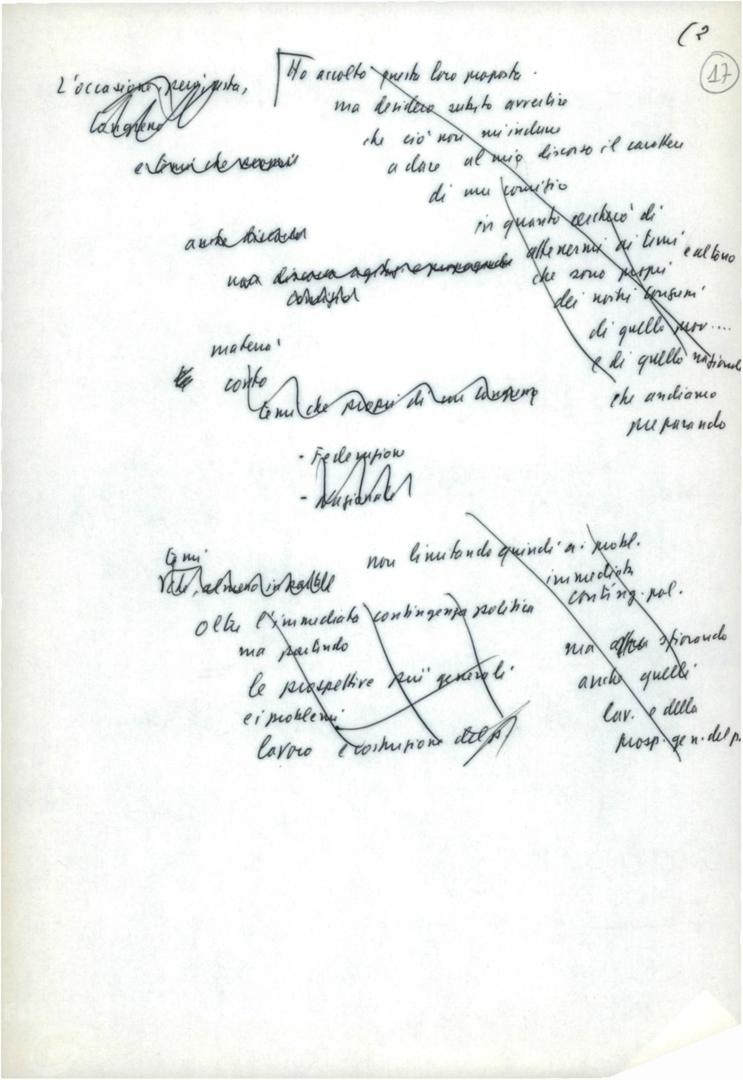 (2
17
L'occasione, perciò,
Ho accolto questa loro proposta.
ma desidero subito avvertire
che ciò non mi induce
a dare al mio discorso il carattere
di un comizio
in quanto cercherò di
attenermi ai temi e al tono
che sono propri
dei nostri congressi
di quello prov....
e di quello nazionale
che andiamo
preparando
e temi che
anche
una
materia
conto
temi che propri di un congresso
- Federazione
- Nazionale
temi
non limitando quindi ai probl.
immediata
conting. pol.
oltre l'immediata contingenza politica
ma partendo
le prospettive più generali
e i problemi
lavoro e costruzione del p
ma sfiorando
anche quelli
lav. e della
prosp. gen. del p.